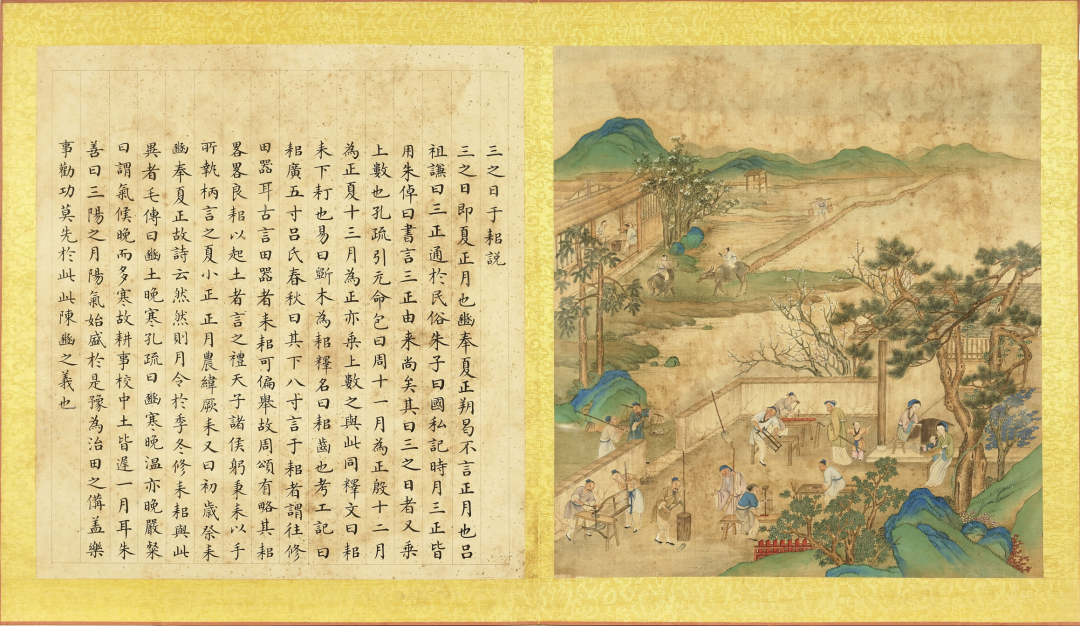 三之日于耜説
三之日即夏正月也豳奉夏正朔曷不言正月也呂
祖謙曰三正通於民俗朱子曰國私記時月三正皆
用朱倬曰書言三正由来尚矣其曰三之日者又乗
上數也孔疏引元命包曰周十一月為正殷十二月
為正夏十三月為正亦乗上數之與此同釋文曰耜
耒下耓也易曰斲木為耜釋名曰耜齒也考工記曰
耜廣五寸呂氏春秋曰其下八寸言于耜者謂往修
田器耳古言田器者耒耜可偏舉故周頌有略其耜
畟畟良耜以起土者言之禮天子諸侯躬秉耒以手
所執柄言之夏小正正月農緯厥耒又曰初歳祭耒
豳奉夏正故詩云然然則月令於季冬修耒耜與此
異者毛傳曰豳土晚寒孔疏曰豳寒晚温亦晚嚴粲
曰謂氣候晚而多寒故耕事校中土皆遲一月耳朱
善曰三陽之月陽氣始盛於是豫為治田之備盖樂
事勸功莫先於此此陳豳之義也